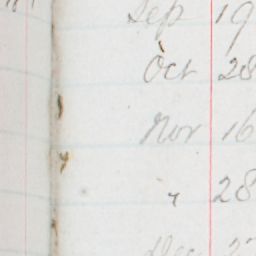 Sep 19
Oct 28
Nov 16
" 28
Dec 2